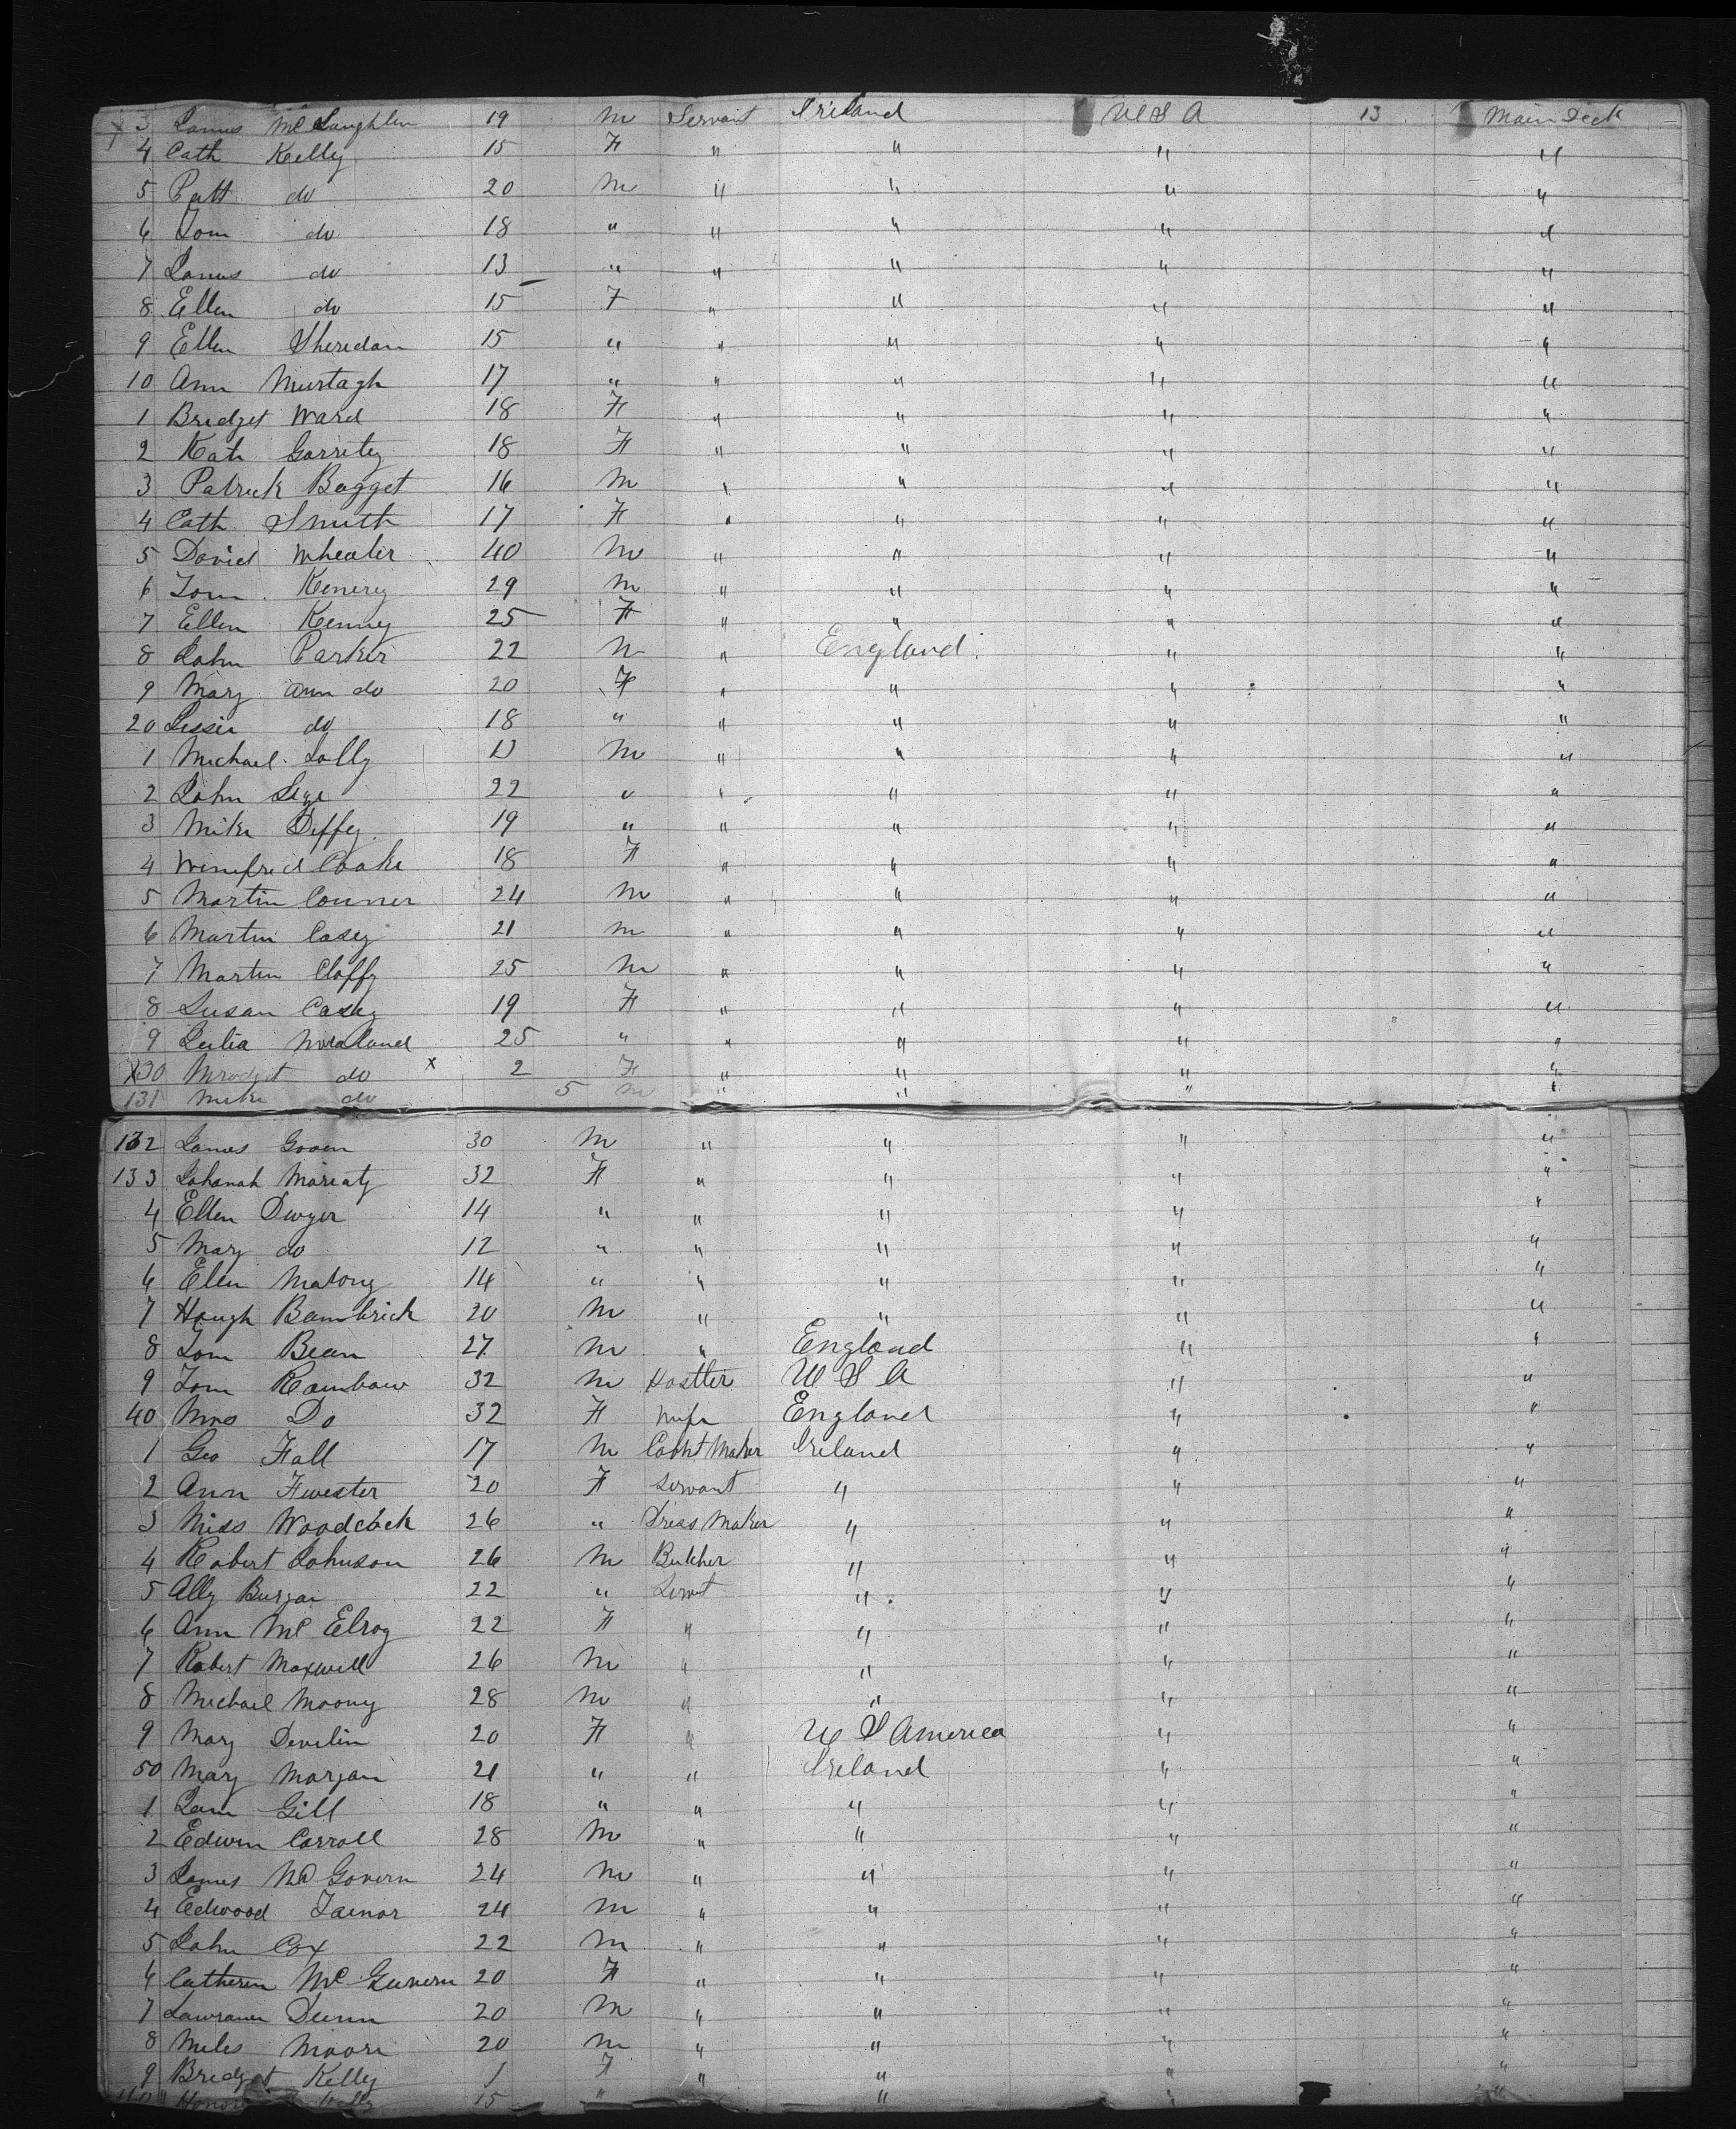 3 James McLaughlin 19 M Servant Ireland U S A 13 Main Deck
4 Cath Kelly 15 F " " " "
5 Patt do 20 M " " " "
6 Tom do 18 " " " " "
7 James do 13 " " " " "
8 Ellen do 15 F " " " "
9 Ellen Sheredan 15 " " " " "
10 Ann Murtagh 17 " " " " "
1 Bredget Ward 18 F " " " "
2 Kath Garrity 18 F " " " "
3 Patrick Bagget 16 M " " " "
4 Cath Smith 17 F " " " "
5 David Wheeler 40 M " " " "
6 Tom 29 M " " " "
7 Ellen Kenney 25 F " " " "
8 John Parker 22 M " England " "
9 Mary Ann do 20 F " " " "
20 do 18 " " " " "
1 Michael Lally M " " " "
2 John 22 " " " " "
3 Mike Deffey 19 " " " " "
4 Winefred Cooke 18 F " " " "
5 Martin Conner 24 M " " " "
6 Martin Casey 21 M " " " "
7 Martin Claffy 25 M " " " "
8 Susan Casey 19 F " " " "
9 Julia 25 " " " " "
X30 do x 2 F " " " "
131 Mike do 5 M " " " "
132 James 30 M " " " "
133 Johanah Moriaty 32 F " " " "
4 Ellen Dwyer 14 " " " " "
5 Mary do 12 " " " " "
6 Elen Matony 14 " " " " "
7 Hough Bambrick 20 M " " " "
8 Tom Bean 27 M " England " "
9 Tom Rambow 32 M Hostler U S A " "
40 Mrs Do 32 F Wife England " "
1 Geo Fall 17 M Ireland " "
2 Ann Fwester 20 F Servant " " "
3 Miss Woodcock 26 " Dress Maker " " "
4 Robert Johnson 26 M Butcher " " "
5 Ally 22 " Servt " " "
6 Ann Mc Elroy 22 F " " " "
7 Robert Maxwell 26 M " " " "
8 Michael Moony 28 M " " " "
9 Mary Devilin 20 F " U S America " "
50 Mary Morgan 21 " " Ireland " "
1 Jam Gill 18 " " " " "
2 Edwin Carroll 28 M " " " "
3 James Mc Govern 24 M " " " "
4 Edwood Tainor 24 M " " " "
5 John Cox 22 M " " " "
6 Catheren Mc Guvern 20 F " " " "
7 Dunn 20 M " " " "
8 Miles Moore 20 M " " " "
9 Bredget Kelly 1 F " " " "
Kelly 15 " " "